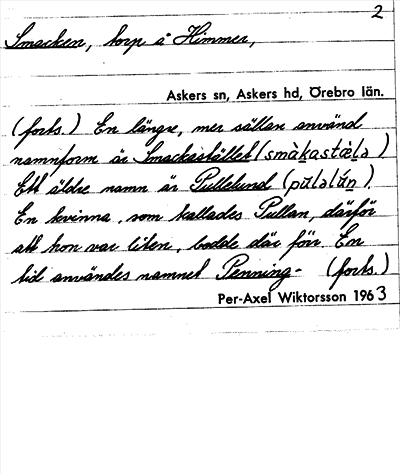 2
Smacken, torp å Himmer,
Askers sn, Askers hd, Örebro län.
(forts.) En längre, mer sällan använd
namnform är Smackastället (smàkastæ̀lə)
Ett äldre namn är Pullelund (pu̇̀ləlún).
En kvinna, som kallades Pullan, därför
att hon var liten, bodde där förr. En
tid användes namnet Penning- (forts.)
Per-Axel Wiktorsson 1963